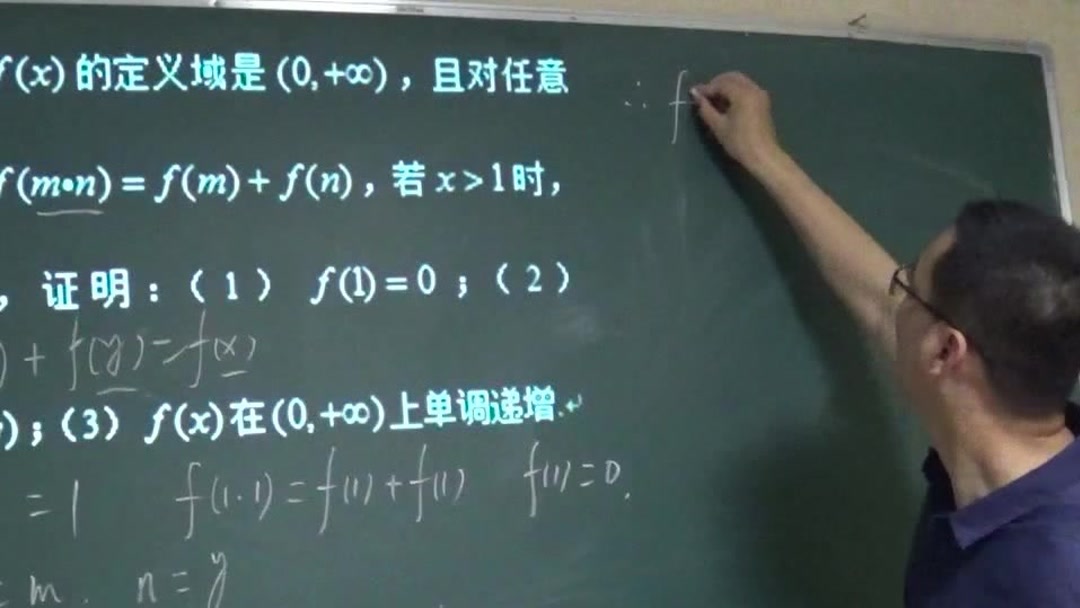 f(x) 的定义域是 (0,+∞)，且对任意
∴ f
f(m•n) = f(m) + f(n)，若 x > 1 时，
，证明：（1） f(1) = 0；（2）
) + f(y) = f(x)
)；（3） f(x) 在 (0,+∞) 上单调递增.
= 1 f(1·1) = f(1) + f(1) f(1) = 0.
= m. n = y